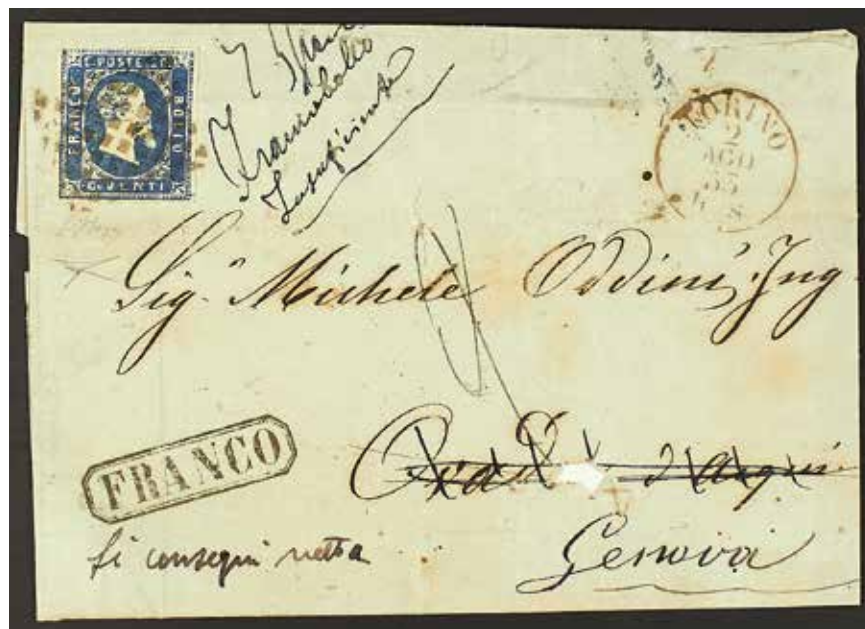 C. POSTE
FRANCO
BOLLO
C. VENTI
Francobollo
Insufficiente
TORINO
2
AGO
Sig. Michele Oddini Ing
FRANCO
Si consegni netta
Genova